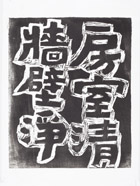 房室清
牆壁淨